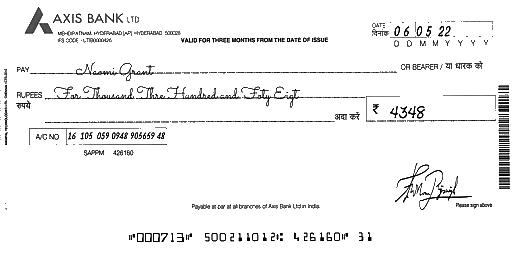 AXIS BANK LTD
MEHDIPATNAM, HYDERABAD [AP] HYDERABAD 500028
IFS CODE - UTIB0000426
VALID FOR THREE MONTHS FROM THE DATE OF ISSUE
DATE दिनांक 06 05 22
D D M M Y Y Y Y
PAY Naomi Grant OR BEARER / या धारक को
RUPEES रुपये For Thousand Thre Hundred and Foty Eigt
अदा करें ₹ 4348
A/C NO 16 105 059 0948 905659 48
SAPPM 426160
Payable at par at all branches of Axis Bank Ltd in India.
Please sign above
"000713" 500211012: 426160" 31